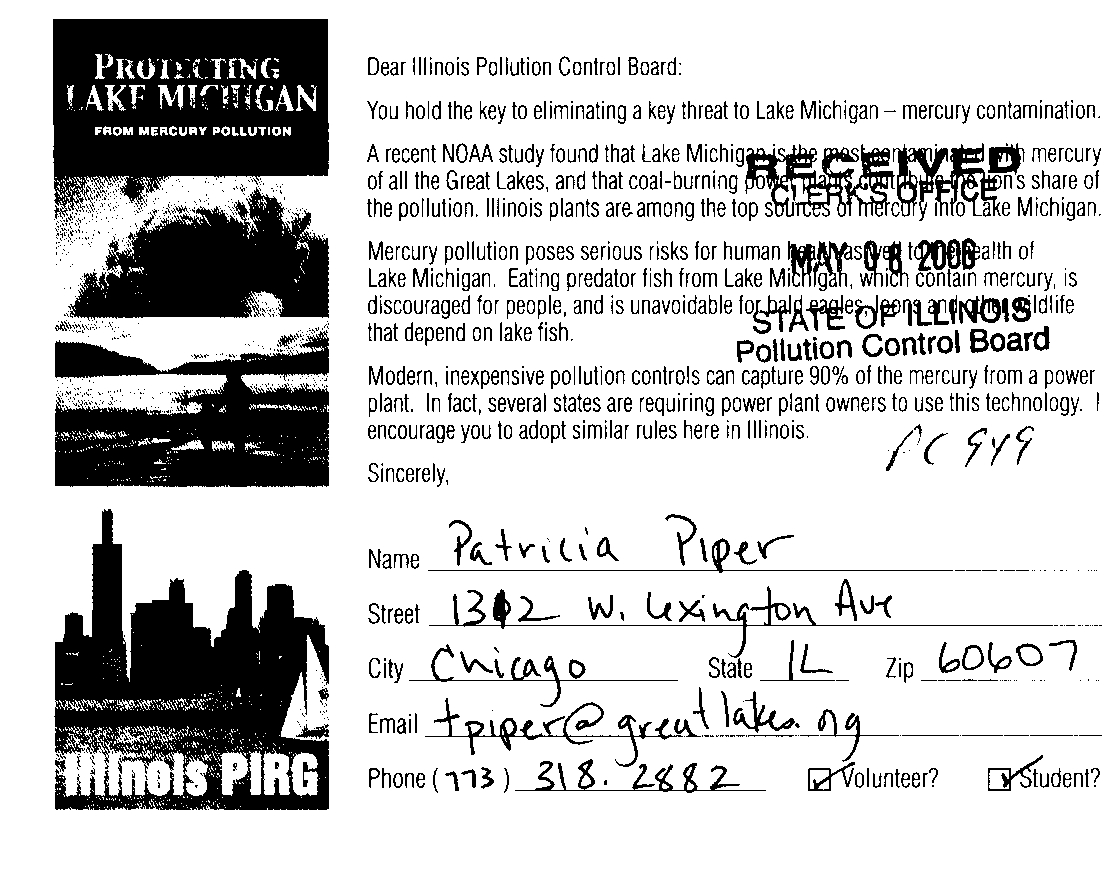 PROTECTING
LAKE MICHIGAN
FROM MERCURY POLLUTION
Illinois PIRG
Dear Illinois Pollution Control Board:
You hold the key to eliminating a key threat to Lake Michigan – mercury contamination.
A recent NOAA study found that Lake Michigan is the most contaminated with mercury
of all the Great Lakes, and that coal-burning power plants contribute the lion's share of
the pollution. Illinois plants are among the top sources of mercury into Lake Michigan.
RECEIVED
CLERK'S OFFICE
MAY 08 2006
STATE OF ILLINOIS
Pollution Control Board
Mercury pollution poses serious risks for human health as well to the health of
Lake Michigan. Eating predator fish from Lake Michigan, which contain mercury, is
discouraged for people, and is unavoidable for bald eagles, loons and other wildlife
that depend on lake fish.
Modern, inexpensive pollution controls can capture 90% of the mercury from a power
plant. In fact, several states are requiring power plant owners to use this technology. I
encourage you to adopt similar rules here in Illinois.
PC 949
Sincerely,
Name Patricia Piper
Street 1312 W. Lexington Ave
City Chicago State IL Zip 60607
Email tpiper@greatlakes.org
Phone (773) 318.2882 Volunteer? Student?